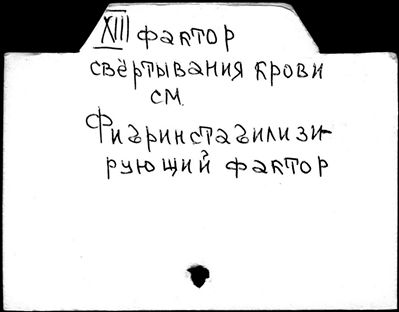 XIII фактор
свёртывания крови
см.
Фибринстабилизи-
рующий фактор